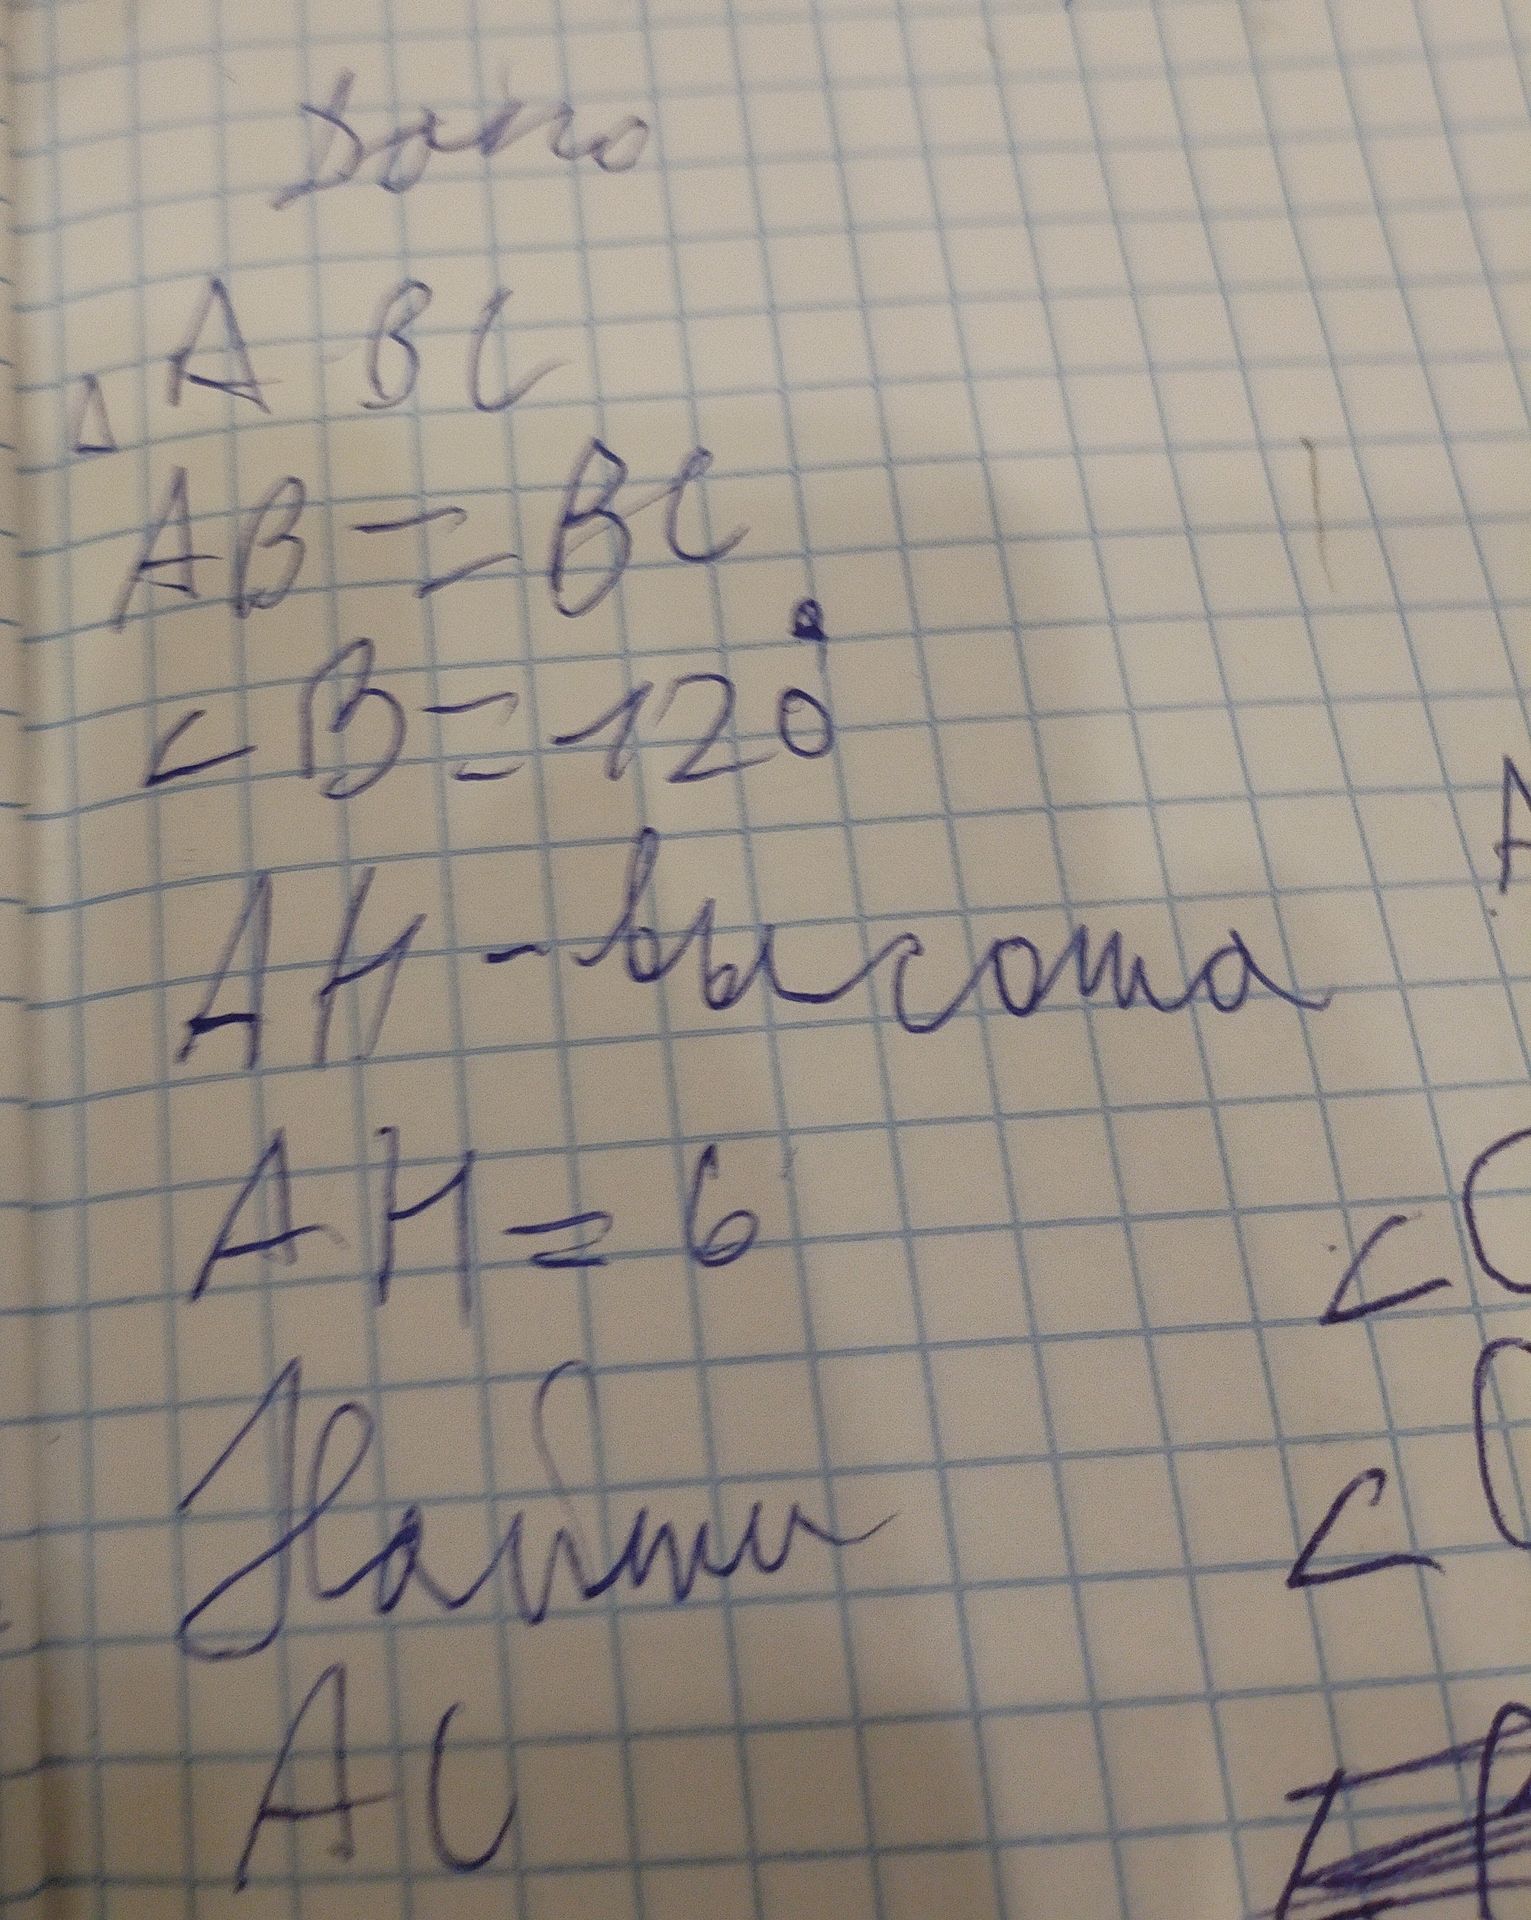 Дано
△ABC
AB = BC
∠B = 120°
AH - высота
AH = 6
Найти
AC